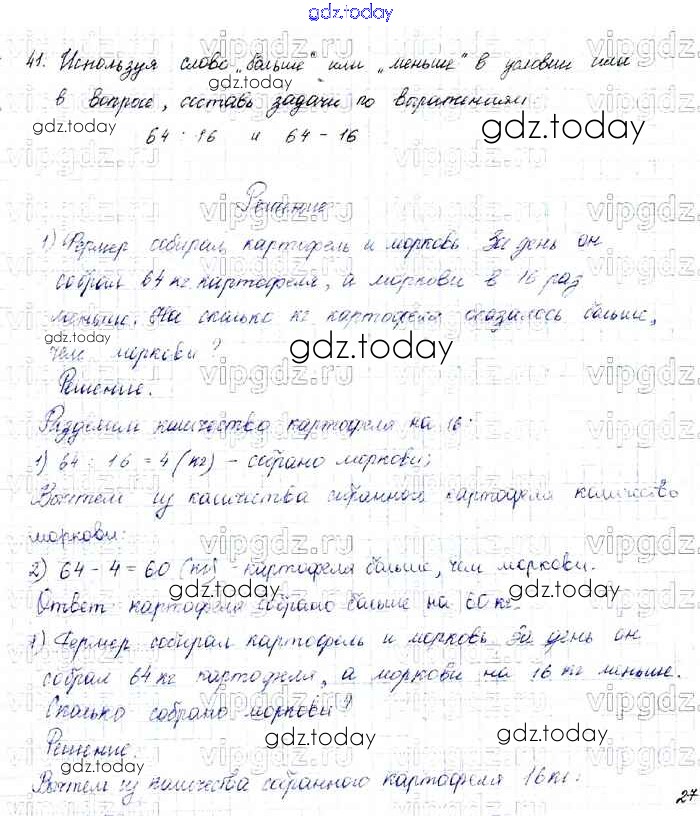 gdz.today
41. Используя слово „больше“ или „меньше“ в условии или
в вопросе, составь задачи по выражениям
64 : 16 и 64 - 16
Решение
1) Фермер собирал картофель и морковь. За день он
собрал 64 кг картофеля, а моркови в 16 раз
меньше. На сколько кг картофеля оказалось больше,
чем моркови?
Решение.
Разделим количество картофеля на 16:
1) 64 : 16 = 4 (кг) - собрано моркови;
Вычтем из количества собранного картофеля количество
моркови:
2) 64 - 4 = 60 (кг) - картофеля больше, чем моркови.
Ответ картофеля собрано больше на 60 кг.
1) Фермер собирал картофель и морковь. За день он
собрал 64 кг картофеля, а моркови на 16 кг меньше.
Сколько собрано моркови?
Решение.
Вычтем из количества собранного картофеля 16 кг:
27